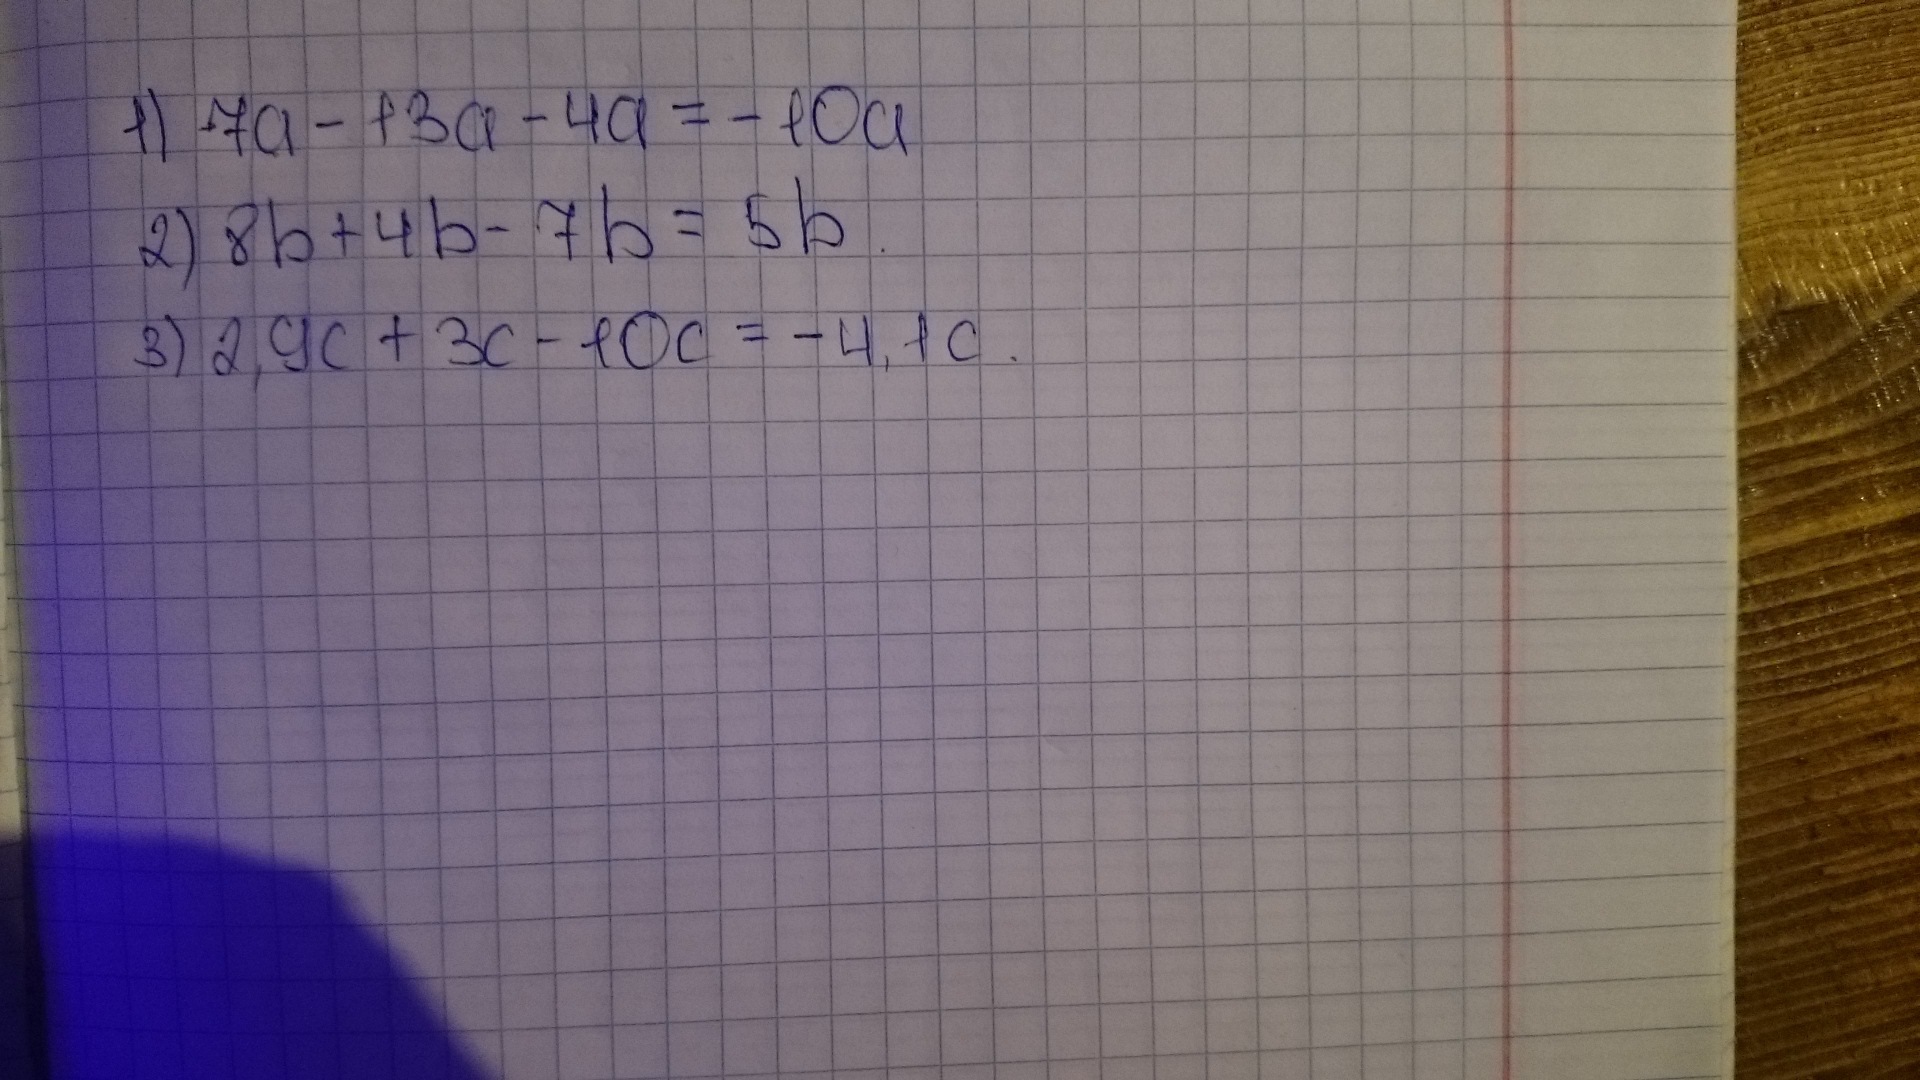 1) 7a - 13a - 4a = - 10a
2) 8b + 4b - 7b = 5b.
3) 2,9c + 3c - 10c = - 4,1c.